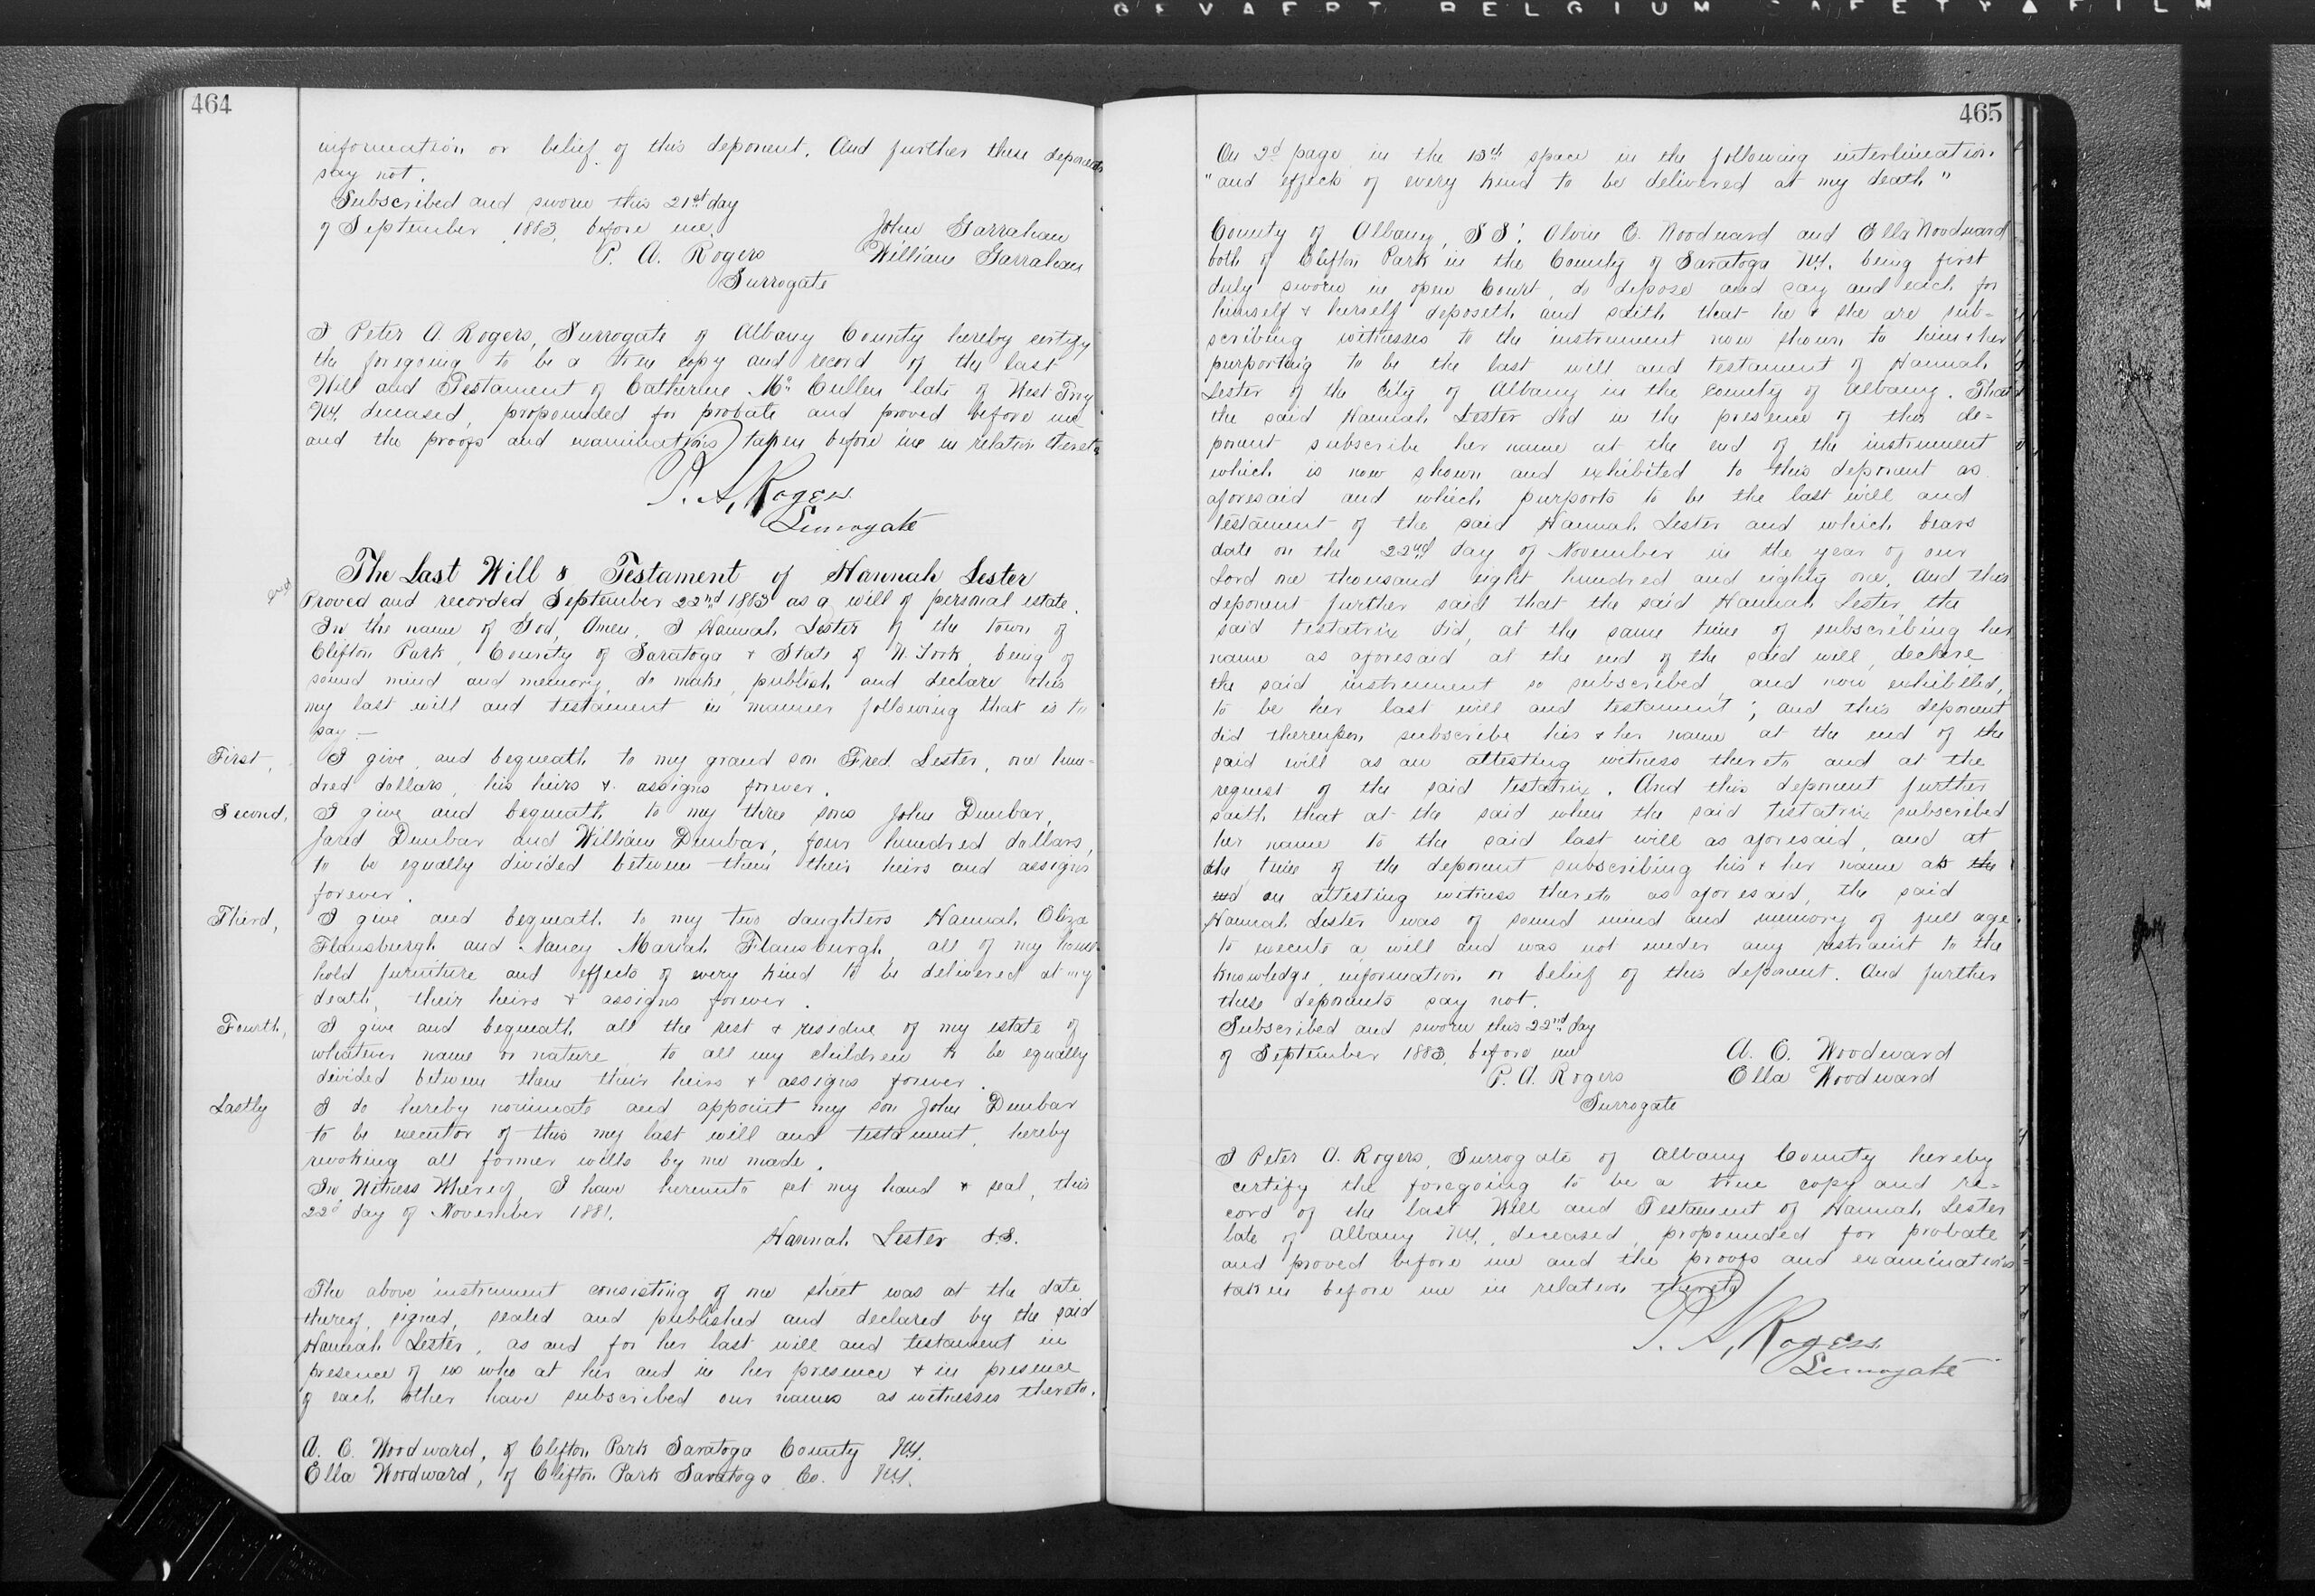 GEVAERT BELGIUM SAFETY ▲ FILM
464
information or belief of this deponent. And further these deponents
say not.
Subscribed and sworn this 21st day
of September 1883, before me.
John Garrahan
P. A. Rogers
William Garrahan
Surrogate
I Peter A. Rogers, Surrogate of Albany County hereby certify
the foregoing to be a true copy and record of the last
Will and Testament of Catherine Mc Cullen late of West Troy
N.Y. deceased, propounded for probate and proved before me
and the proofs and examinations taken before me in relation thereto
P. A. Rogers
Surrogate
The Last Will & Testament of Hannah Lester
Proved and recorded September 22nd 1883 as a will of personal estate.
In the name of God, Amen. I Hannah Lester of the town of
Clifton Park, County of Saratoga & State of N. York, being of
sound mind and memory, do make, publish and declare this
my last will and testament in manner following that is to
say.—
First, I give and bequeath to my grand son Fred Lester, one hun=
dred dollars, his heirs & assigns forever.
Second, I give and bequeath to my three sons John Dunbar,
Jared Dunbar and William Dunbar, four hundred dollars,
to be equally divided between them their heirs and assigns
forever.
Third, I give and bequeath to my two daughters Hannah Eliza
Flansburgh and Nancy Mariah Flansburgh, all of my house
hold furniture and effects of every kind to be delivered at my
death, their heirs & assigns forever.
Fourth, I give and bequeath all the rest & residue of my estate of
whatever name or nature to all my children to be equally
divided between them their heirs & assigns forever.
Lastly I do hereby nominate and appoint my son John Dunbar
to be executor of this my last will and testament, hereby
revoking all former wills by me made.
In Witness Whereof, I have hereunto set my hand & seal, this
22d day of November 1881.
Hannah Lester L.S.
The above instrument consisting of one sheet was at the date
thereof, signed, sealed and published and declared by the said
Hannah Lester, as and for her last will and testament in
presence of us who at her and in her presence & in presence
of each other have subscribed our names as witnesses thereto.
A. E. Woodward, of Clifton Park Saratoga County N.Y.
Ella Woodward, of Clifton Park Saratoga Co. N.Y.
465
On 2d page in the 13th space in the following interlineation
"and effects of every kind to be delivered at my death"
County of Albany, SS: Alvin E. Woodward and Ella Woodward
both of Clifton Park in the County of Saratoga N.Y. being first
duly sworn in open Court, do depose and say and each for
himself & herself deposeth and saith that he & she are sub=
scribing witnesses to the instrument now shown to him & her
purporting to be the last will and testament of Hannah
Lester of the City of Albany in the county of Albany. That
the said Hannah Lester did in the presence of this de=
ponent subscribe her name at the end of the instrument
which is now shown and exhibited to this deponent as
aforesaid and which purports to be the last will and
testament of the said Hannah Lester and which bears
date on the 22nd day of November in the year of our
Lord one thousand eight hundred and eighty one. And this
deponent further said that the said Hannah Lester the
said testatrix did, at the same time of subscribing her
name as aforesaid at the end of the said will, declare
the said instrument so subscribed, and now exhibited,
to be her last will and testament; and this deponent
did thereupon subscribe his & her name at the end of the
said will as an attesting witness thereto and at the
request of the said testatrix. And this deponent further
saith that at the said when the said testatrix subscribed
her name to the said last will as aforesaid, and at
the time of the deponent subscribing his & her name as the
end an attesting witness thereto as aforesaid, the said
Hannah Lester was of sound mind and memory of full age
to execute a will and was not under any restraint to the
knowledge, information or belief of this deponent. And further
these deponents say not.
Subscribed and sworn this 22nd day
of September 1883, before me
A. E. Woodward
P. A. Rogers
Ella Woodward
Surrogate
I Peter A. Rogers, Surrogate of Albany County hereby
certify the foregoing to be a true copy and re=
cord of the last Will and Testament of Hannah Lester
late of Albany N.Y., deceased, propounded for probate
and proved before me and the proofs and examinations
taken before me in relation thereto
P. A. Rogers
Surrogate